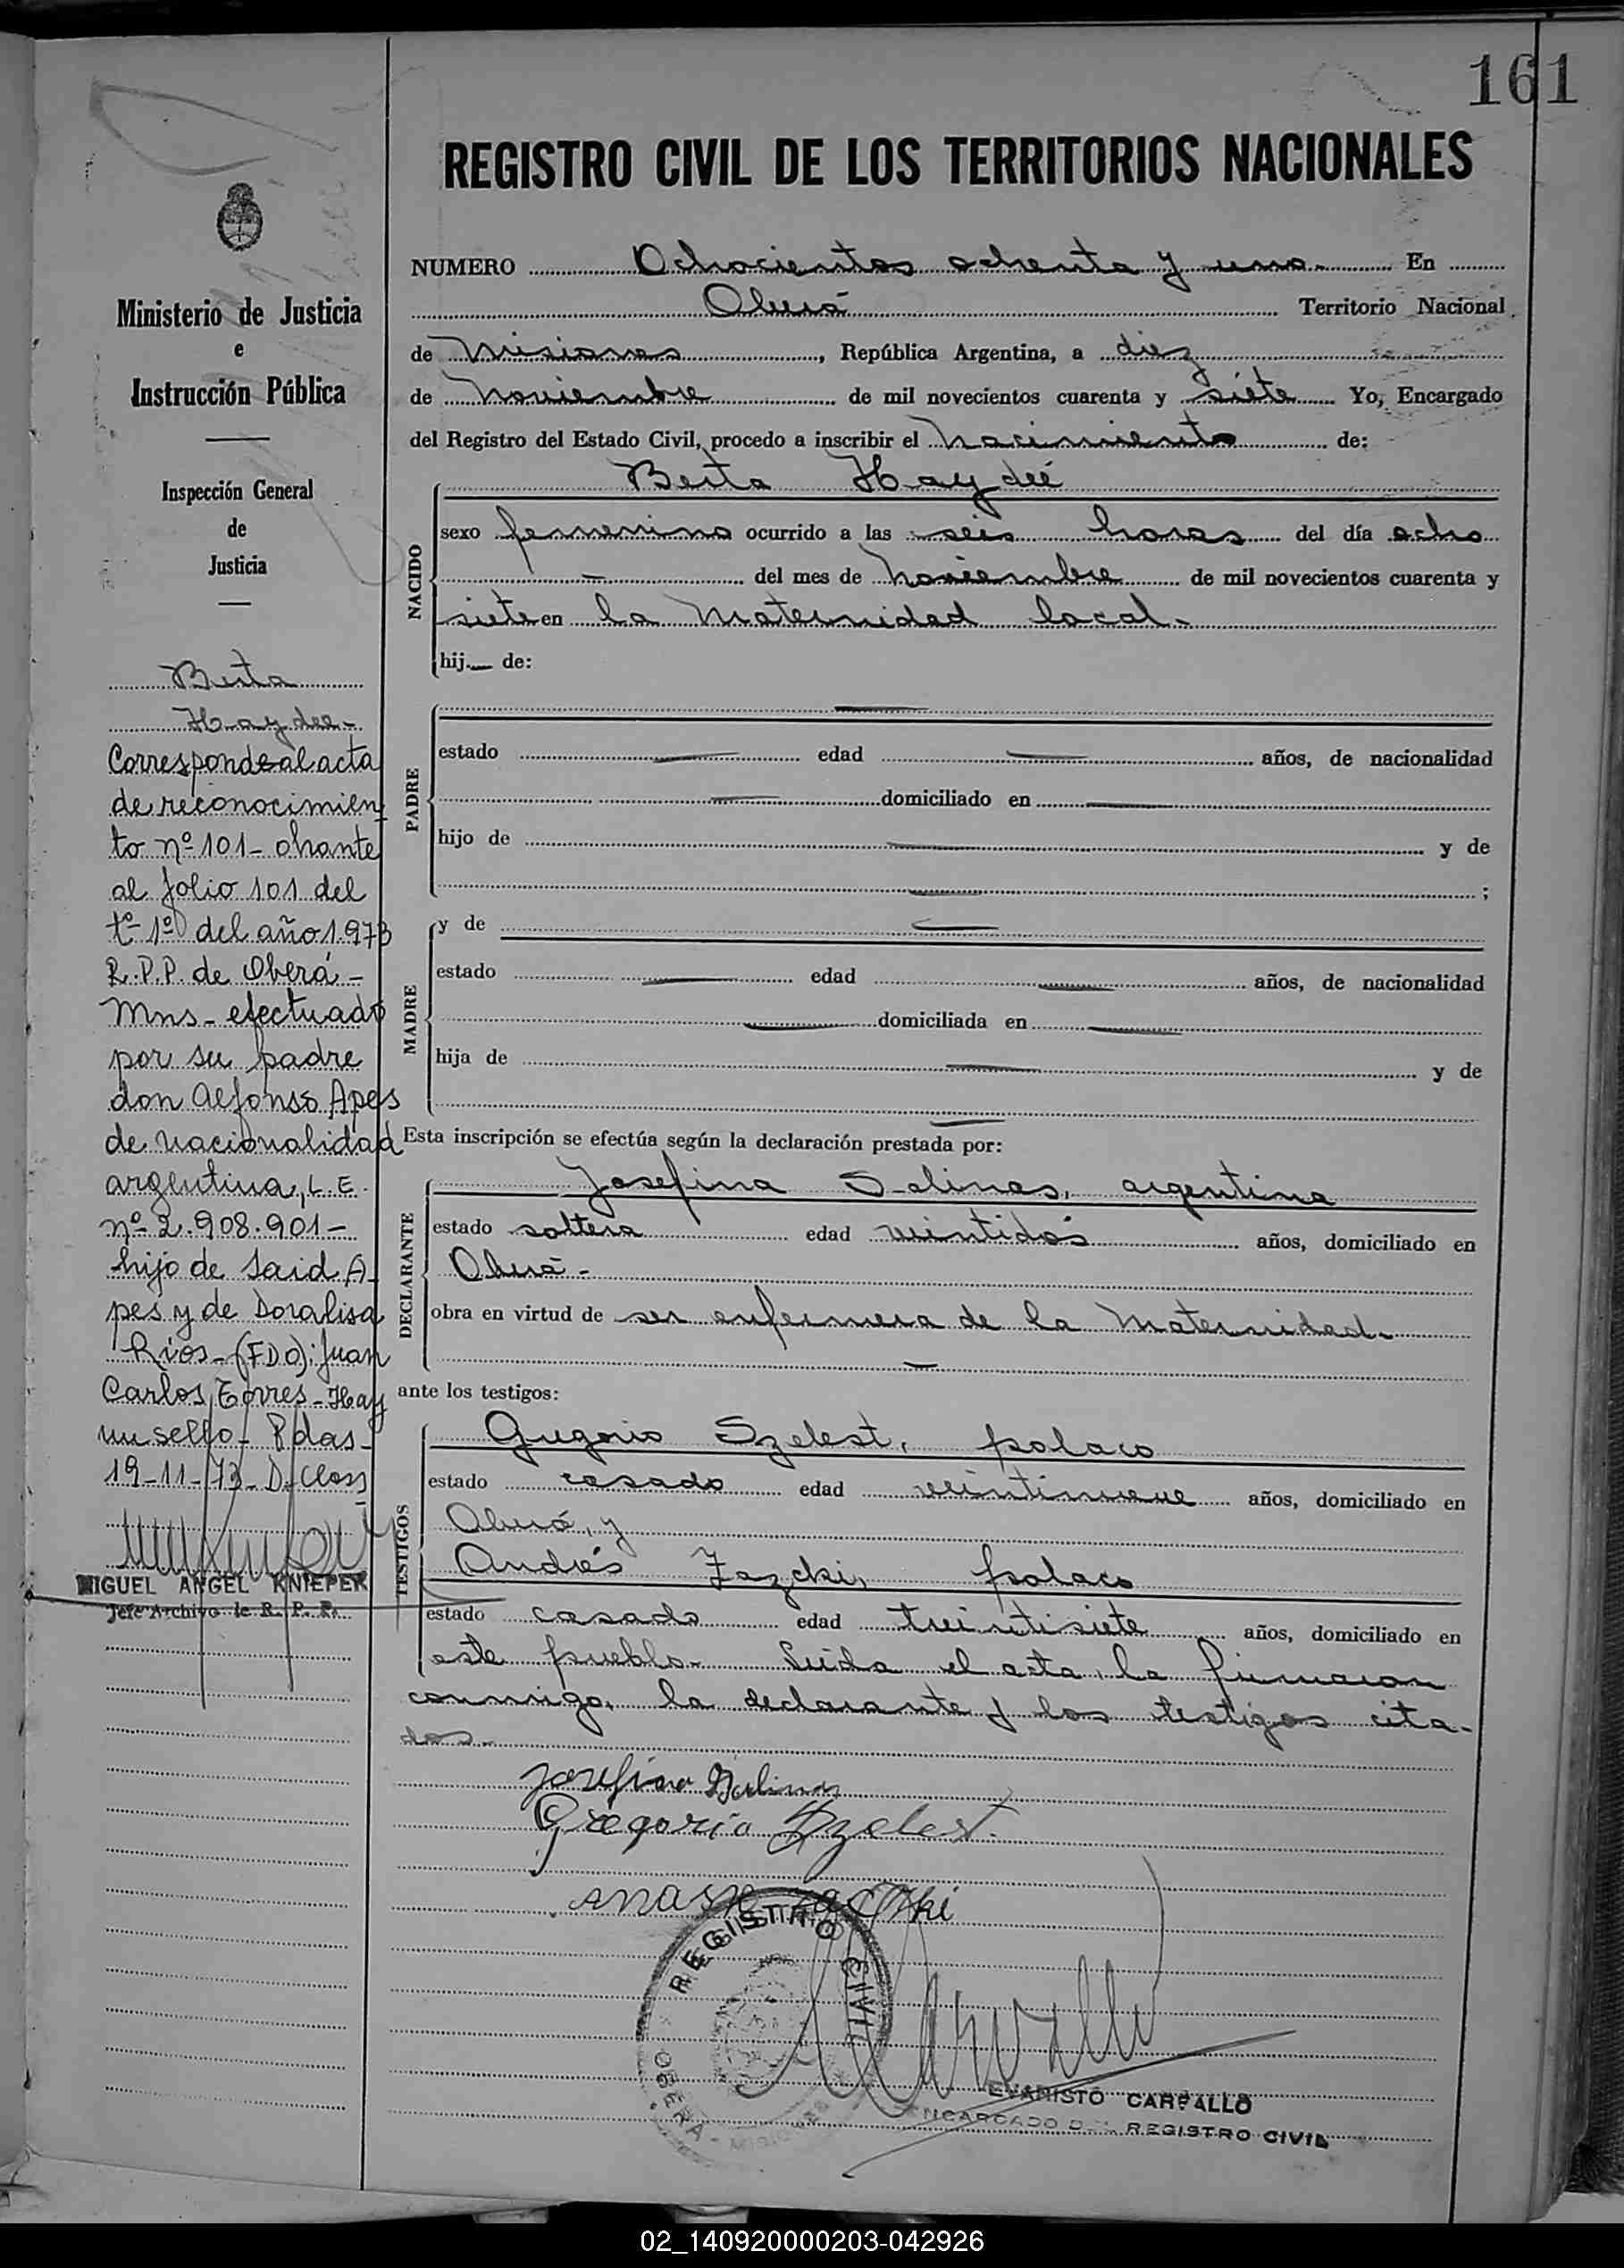 161
REGISTRO CIVIL DE LOS TERRITORIOS NACIONALES
NUMERO Ochocientos ochenta y uno.- En
Oberá Territorio Nacional
de Misiones, República Argentina, a diez
de Noviembre de mil novecientos cuarenta y siete Yo, Encargado
del Registro del Estado Civil, procedo a inscribir el nacimiento de:
NACIDO
Berta Haydeé
sexo femenino ocurrido a las seis horas del día ocho
— del mes de noviembre de mil novecientos cuarenta y
siete en la Maternidad local.-
hij— de:
PADRE
—
estado — edad — años, de nacionalidad
— domiciliado en —
hijo de — y de
— ;
MADRE
y de —
estado — edad — años, de nacionalidad
— domiciliada en —
hija de — y de
—
Esta inscripción se efectúa según la declaración prestada por:
DECLARANTE
Josefina Salinas, argentina
estado soltera edad veintidós años, domiciliado en
Oberá.-
obra en virtud de ser enfermera de la Maternidad.-
—
ante los testigos:
TESTIGOS
Gregorio Szelest, polaco
estado casado edad veintinueve años, domiciliado en
Oberá, y
Andrés Zazcki, polaco
estado casado edad treintisiete años, domiciliado en
este pueblo.- Leída el acta, la firmaron
conmigo, la declarante y los testigos cita-
dos.-
Josefina Salinas
Gregorio Szelest.
REGISTRO CIVIL
OBERÁ - MISIONES
EVARISTO CARVALLO
ENCARGADO DEL REGISTRO CIVIL
Ministerio de Justicia
e
Instrucción Pública
Inspección General
de
Justicia
Berta
Haydee.-
Corresponde al acta
de reconocimien
to nº 101- obrante
al folio 101 del
tº 1º del año 1.973
R.P.P. de Oberá -
Mns- efectuado
por su padre
don Alfonso Apes
de nacionalidad
argentina, L.E.
nº 2.908.901-
hijo de Said A-
pes y de Doralisa
Rios-(FDO): Juan
Carlos Torres-Hay
un sello- Pdas-
19-11-73- D. Closs
MIGUEL ANGEL KNIEPEK
Jefe Archivo de R. P. P.
02_140920000203-042926